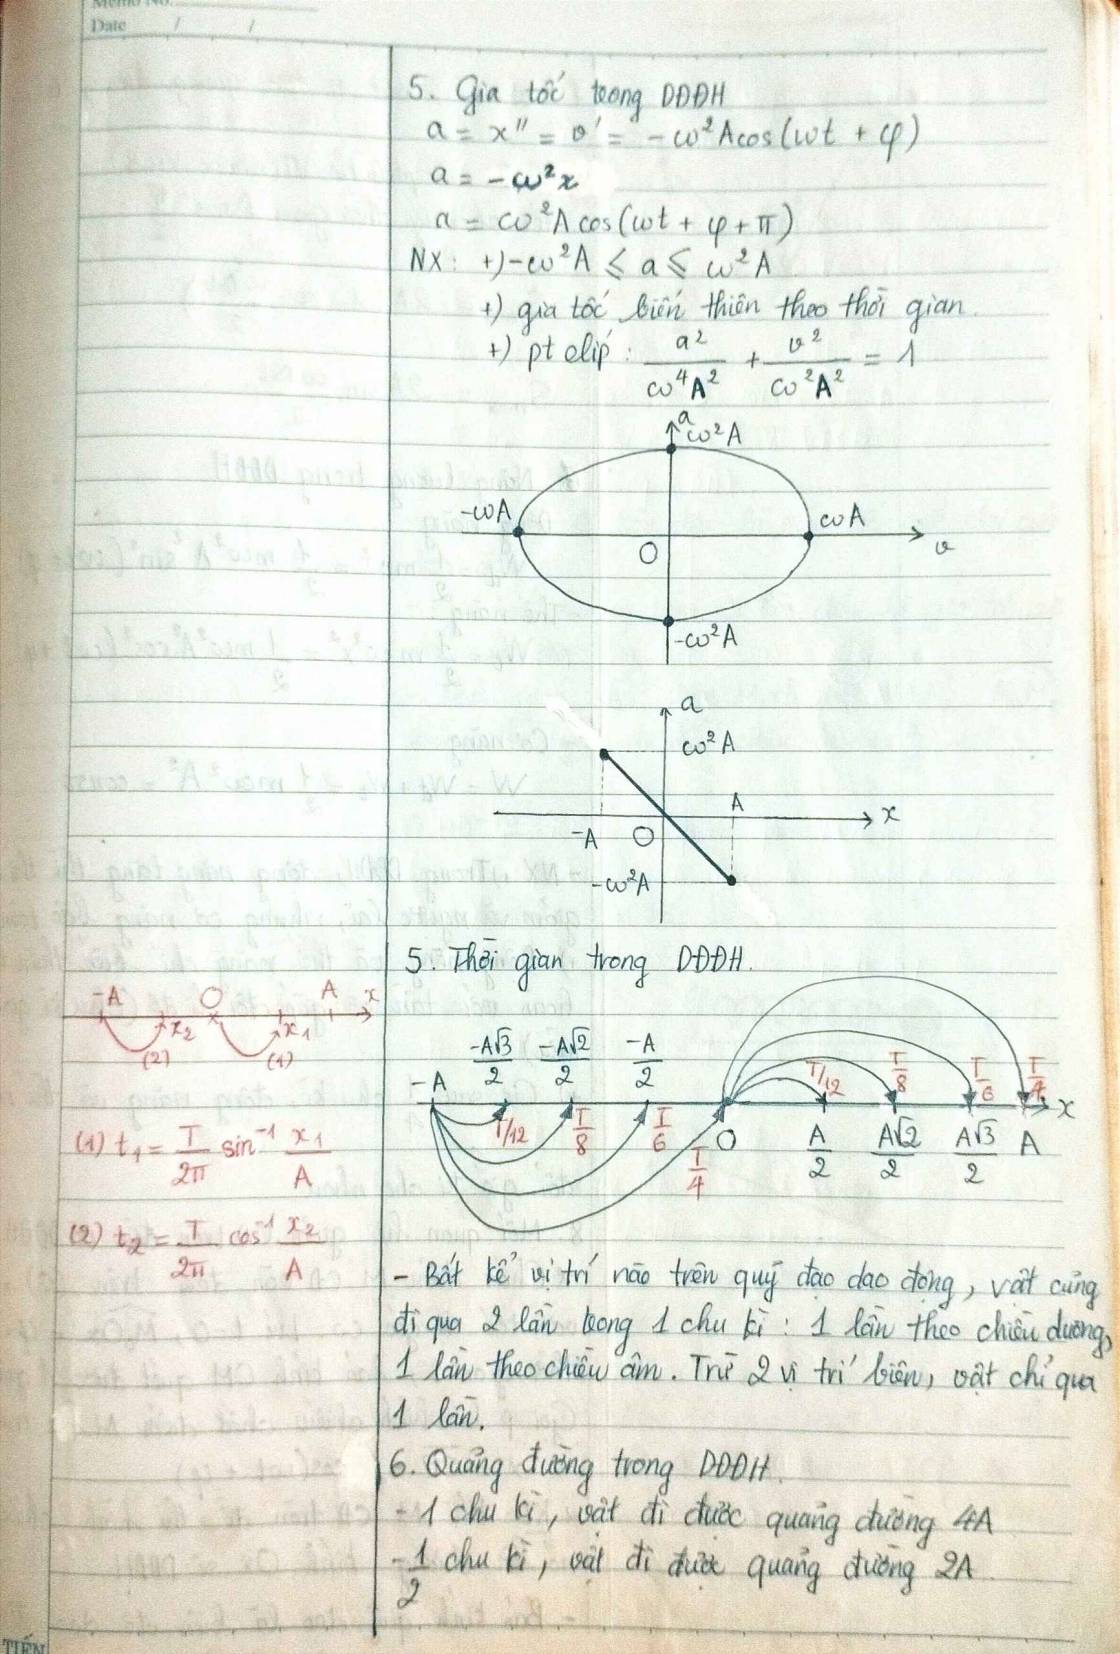 Memo No.
Date / /
5. Gia tốc trong DĐĐH
a = x'' = v' = -ω²Acos(ωt + φ)
a = -ω²x
a = ω²Acos(ωt + φ + π)
NX: +) -ω²A ≤ a ≤ ω²A
+) gia tốc biến thiên theo thời gian.
+) pt elip: a²/ω⁴A² + v²/ω²A² = 1
a
ω²A
-ωA
ωA
O
v
-ω²A
a
ω²A
A
x
-A
O
-ω²A
5. Thời gian trong DĐĐH.
-A O A x
x₂ x₁
(2) (1)
(1) t₁ = T/2π sin⁻¹ x₁/A
(2) t₂ = T/2π cos⁻¹ x₂/A
-A -A√3/2 -A√2/2 -A/2
T/12 T/8 T/6 T/4
T/12 T/8 T/6 T/4
O A/2 A√2/2 A√3/2 A x
- Bất kể vị trí nào trên quỹ đạo dao động, vật cũng
đi qua 2 lần trong 1 chu kì: 1 lần theo chiều dương,
1 lần theo chiều âm. Trừ 2 vị trí biên, vật chỉ qua
1 lần.
6. Quãng đường trong DĐĐH.
- 1 chu kì, vật đi được quãng đường 4A
- 1/2 chu kì, vật đi được quãng đường 2A
TIẾN